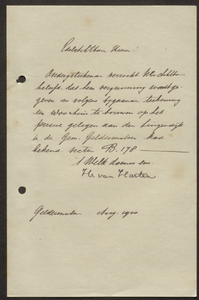 Edelachtbare Heeren
Ondergeteekende verzoekt UEdelAchtb.
beleefd dat hem vergunning wordt ge-
geven om volgens bijgaande teekening
een Woonhuis te bouwen op het
perceel gelegen aan den Lingendijk
in de Gem. Geldermalsen kad.
bekend sectie B. 178
't Welk doende enz
H. van Harten
Geldermalsen